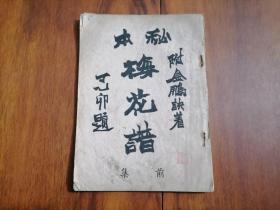 秘本
附金鵬訣著
梅花譜
卯題
前集